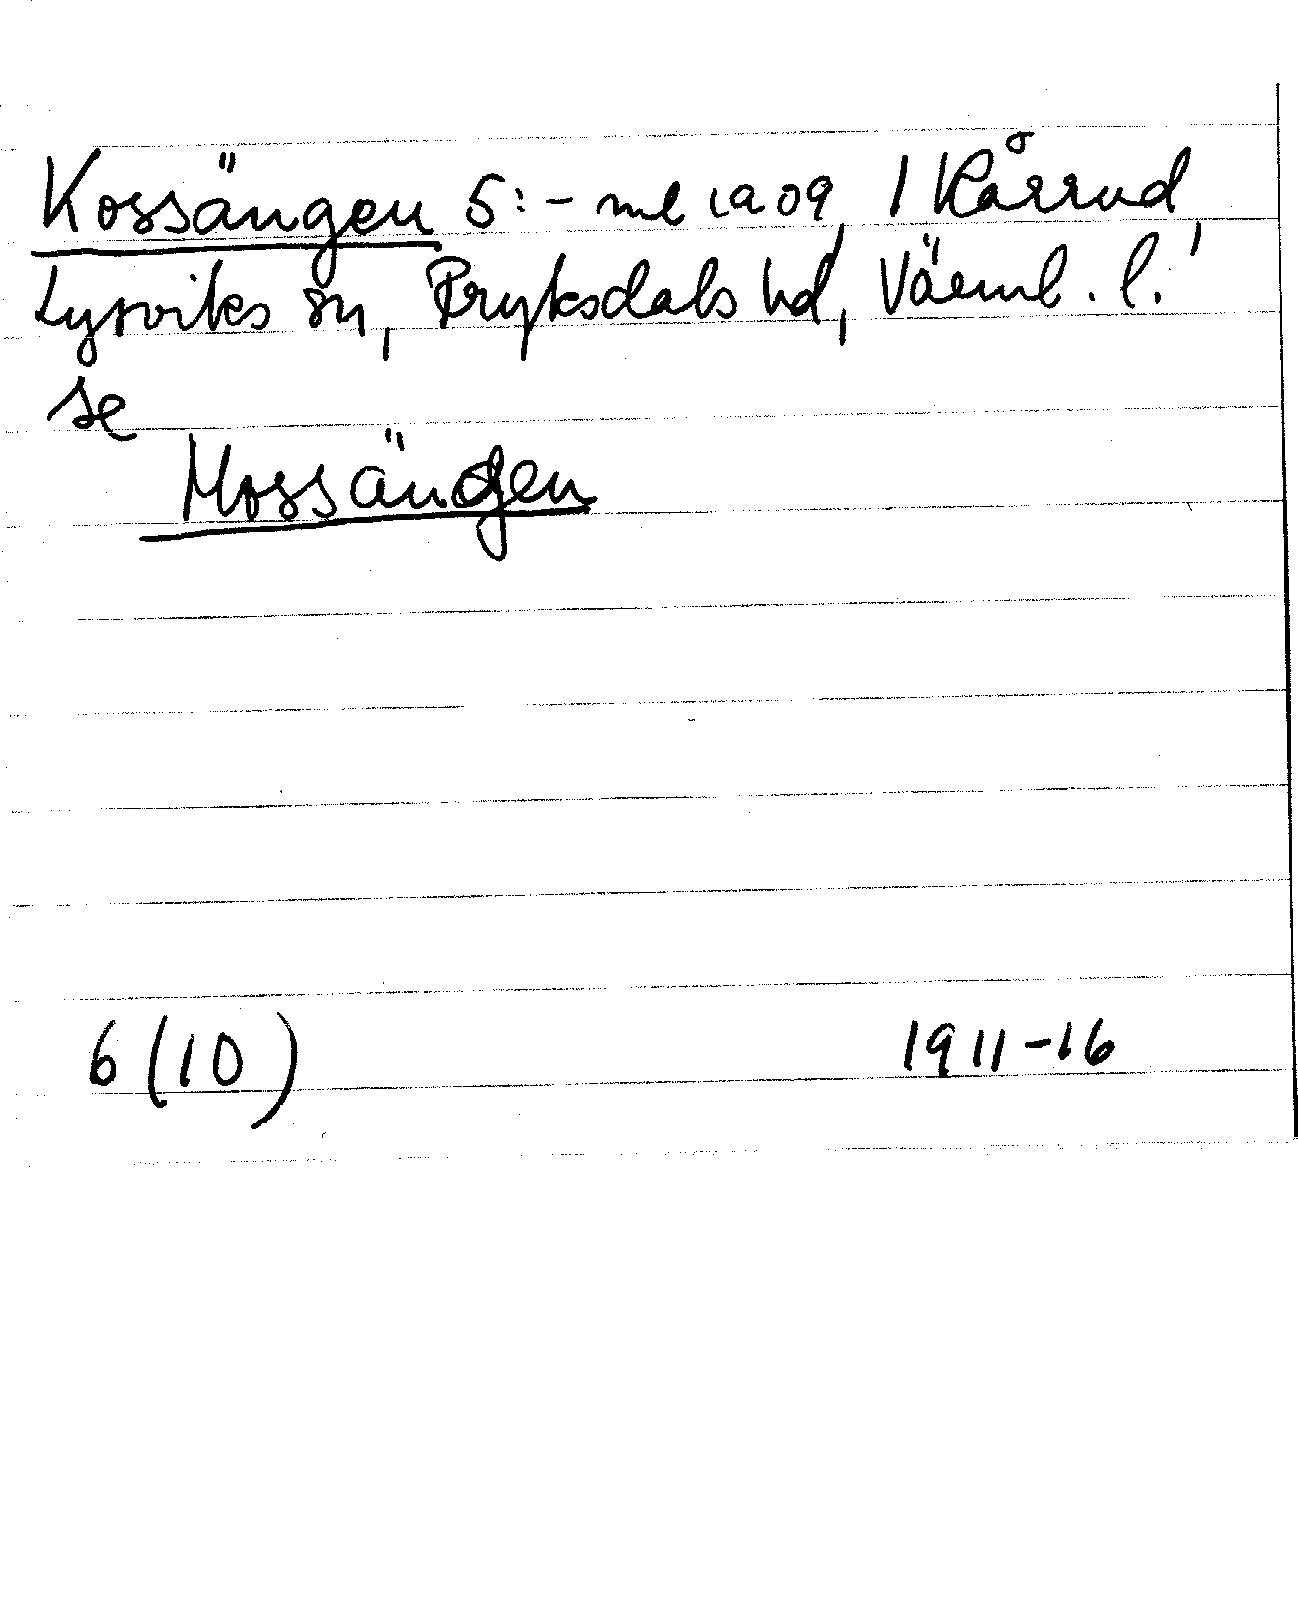 Kossängen 5:- ml ca 09, 1 Kårrud,
Lysviks sn, Fryksdals hd, Värml. l.
se
Mossängen
6 (10) 1911-16